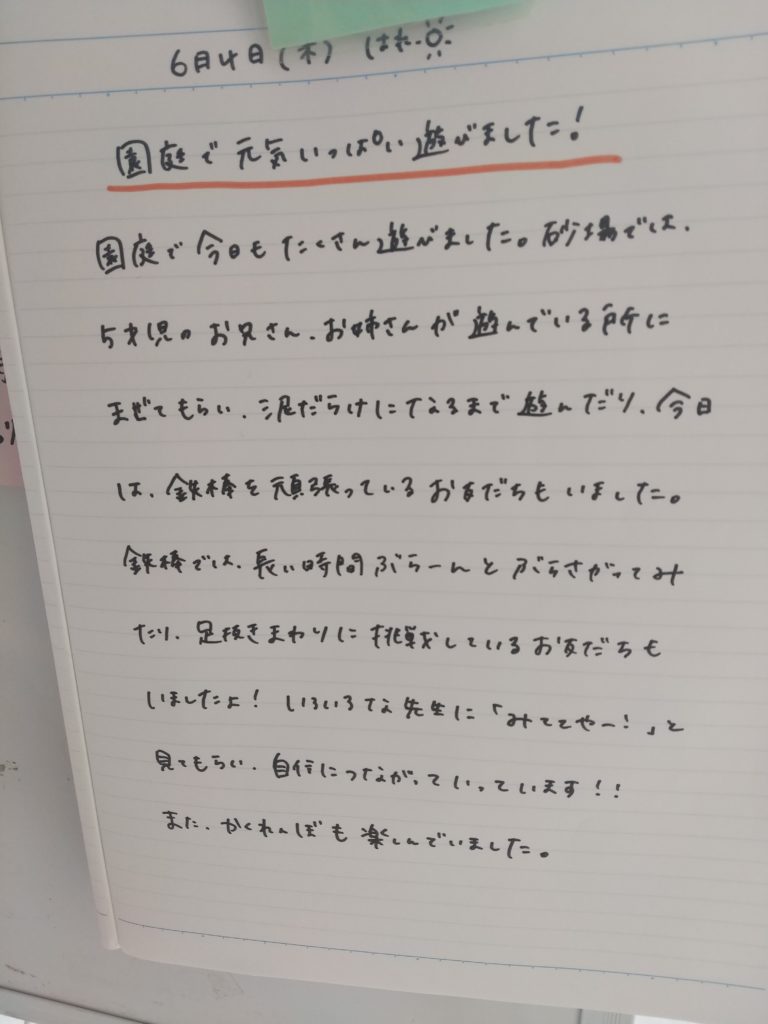 6月4日(木) はれ
園庭で元気いっぱい遊びました!
園庭で今日もたくさん遊びました。砂場では、
5才児のお兄さん、お姉さんが遊んでいる所に
まぜてもらい、泥だらけになるまで遊んだり、今日
は、鉄棒を頑張っているお友だちもいました。
鉄棒では、長い時間ぶらーんとぶらさがってみ
たり、足抜きまわりに挑戦しているお友だちも
いましたよ!いろいろな先生に「みててやー!」と
見てもらい、自信につながっていっています!!
また、かくれんぼも楽しんでいました。